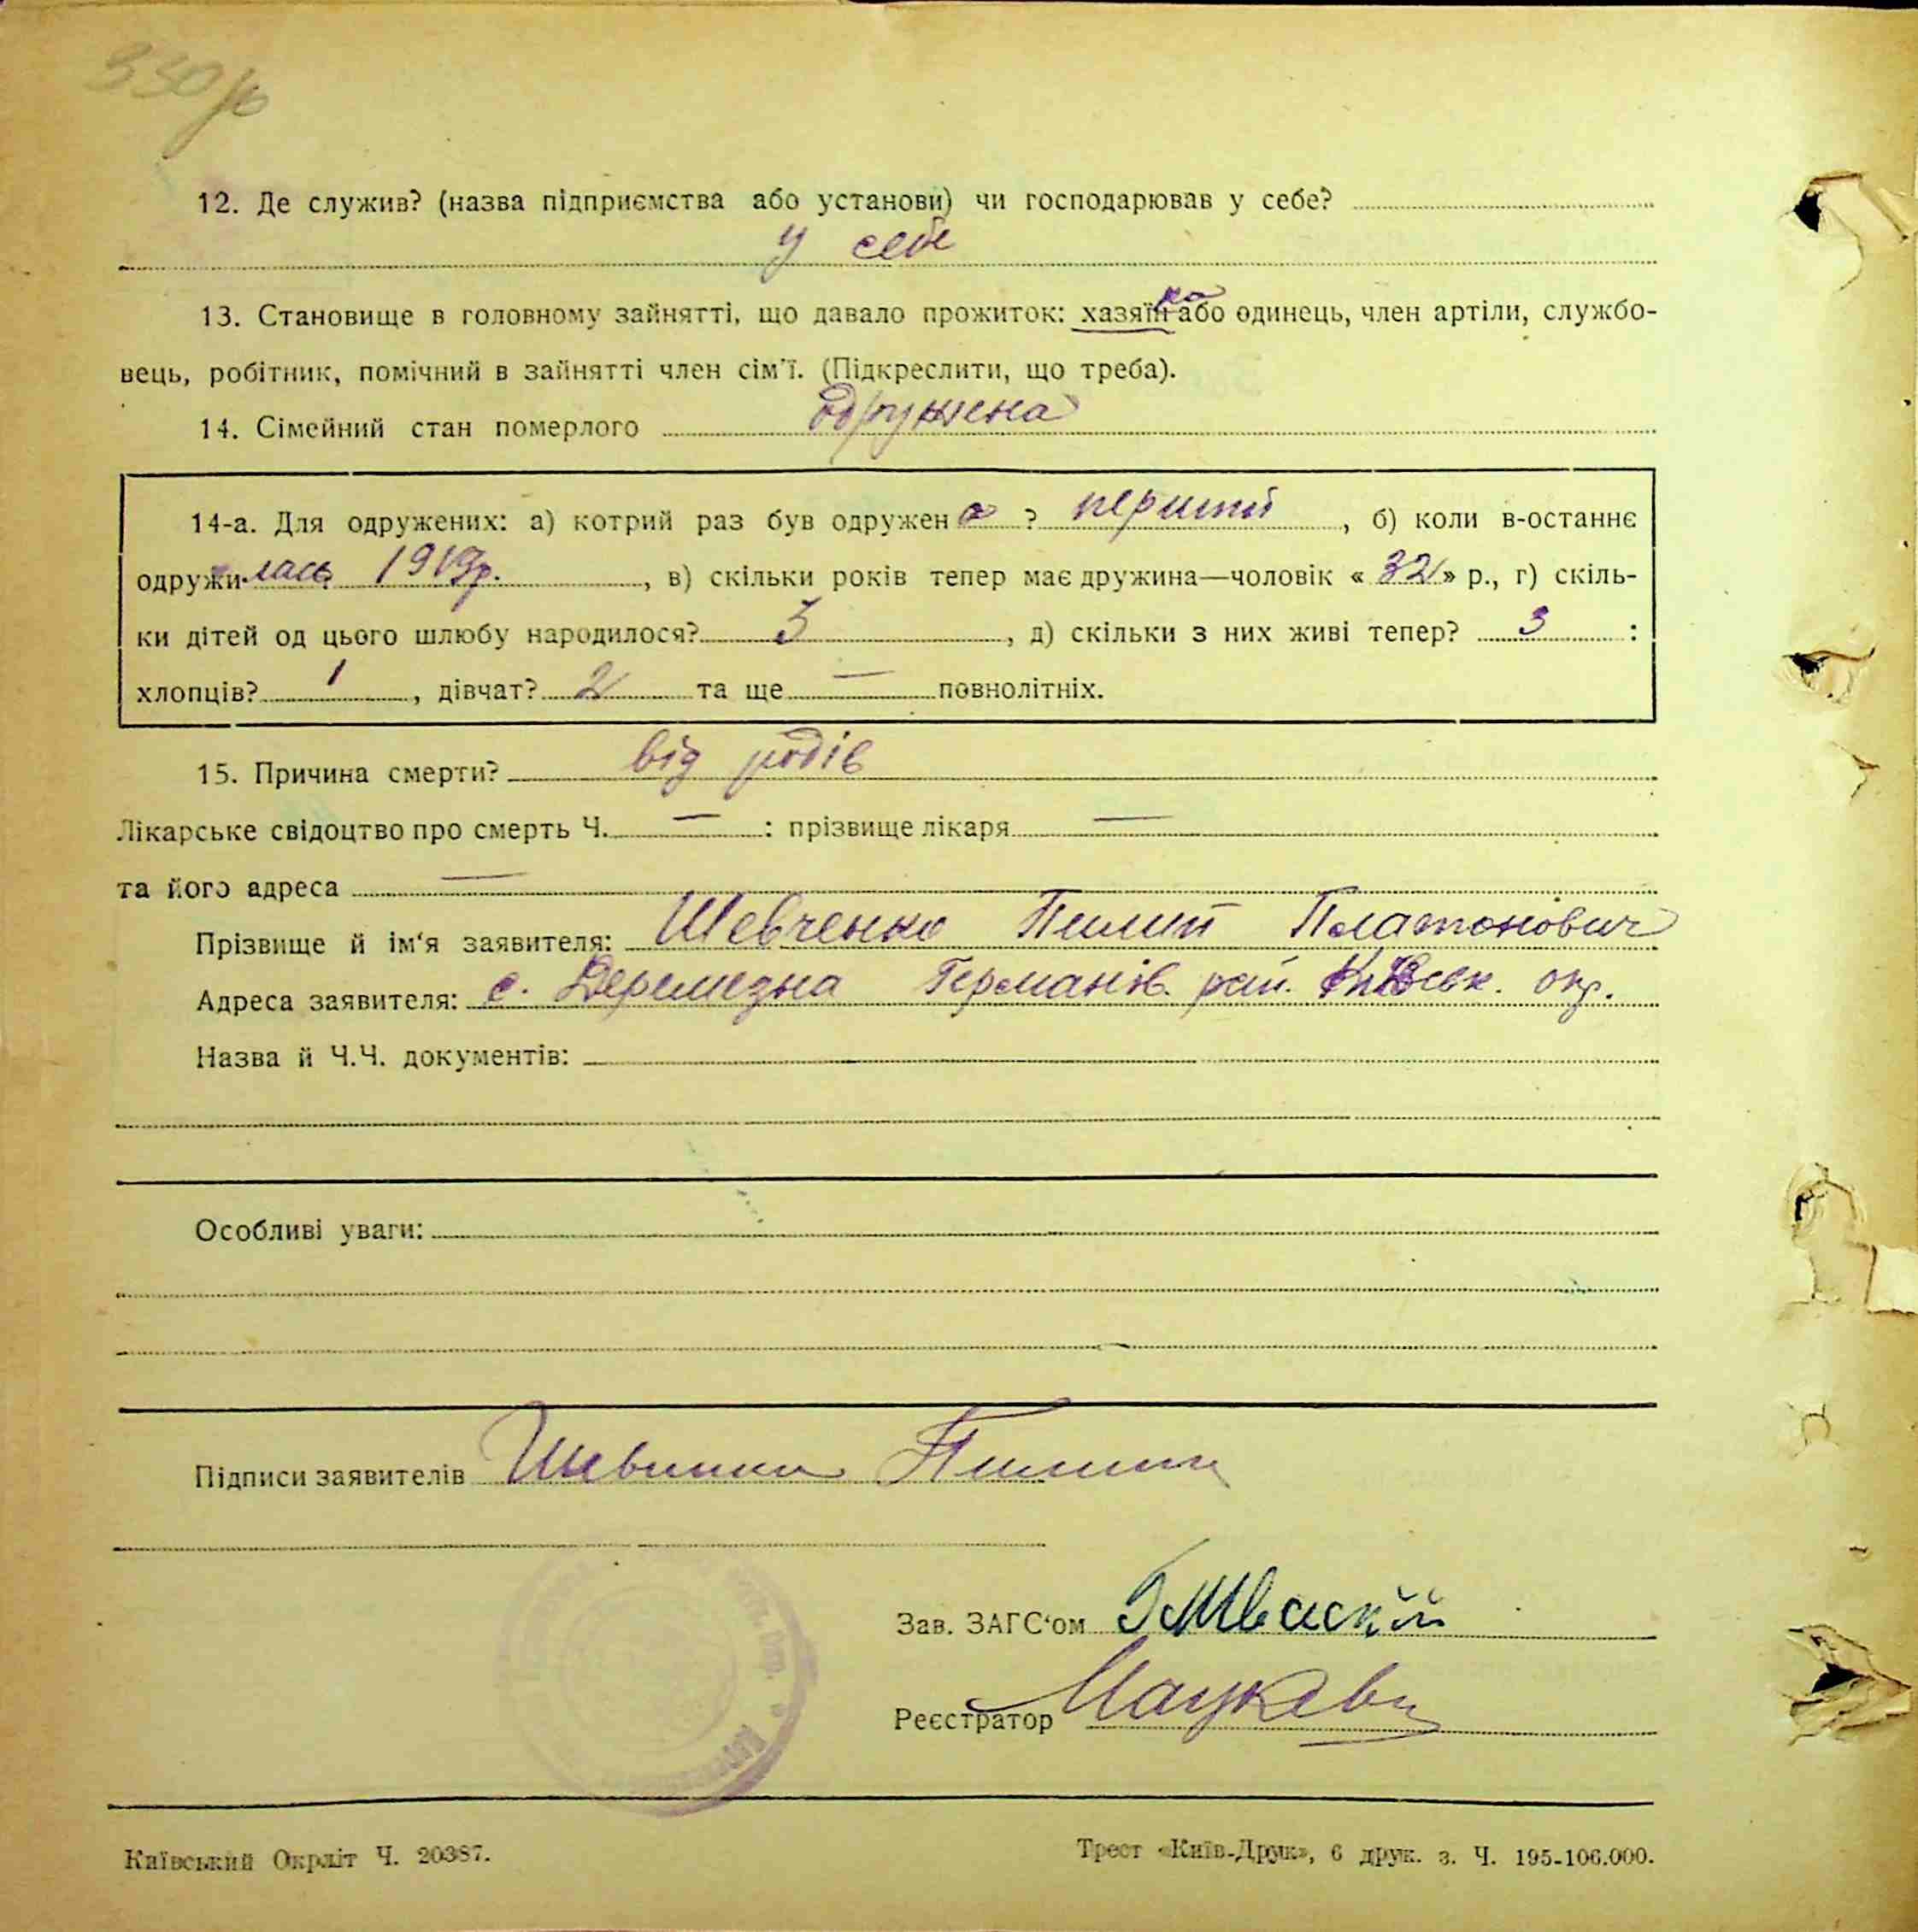 12. Де служив? (назва підприємства або установи) чи господарював у себе?
у себе
13. Становище в головному зайнятті, що давало прожиток: хазяїнка або одинець, член артіли, службо-
вець, робітник, помічний в зайнятті член сім'ї. (Підкреслити, що треба).
14. Сімейний стан померлого одружена
14-а. Для одружених: а) котрий раз був одружен а ? перший , б) коли в-останнє
одружи-лась 1919р. , в) скільки років тепер має дружина—чоловік « 32 » р., г) скіль-
ки дітей од цього шлюбу народилося? 3 , д) скільки з них живі тепер? 3 :
хлопців? 1 , дівчат? 2 та ще — повнолітніх.
15. Причина смерти? від родів
Лікарське свідоцтво про смерть Ч. — : прізвище лікаря —
та його адреса —
Прізвище й ім'я заявителя: Шевченко Пилип Платонович
Адреса заявителя: с. Деремезна Германів. рай. Київськ. окр.
Назва й Ч.Ч. документів:
Особливі уваги:
Підписи заявителів Шевченко Пилип
Зав. ЗАГС'ом
Реєстратор
Київський Окрліт Ч. 20387.
Трест «Київ-Друк», 6 друк. з. Ч. 195-106.000.